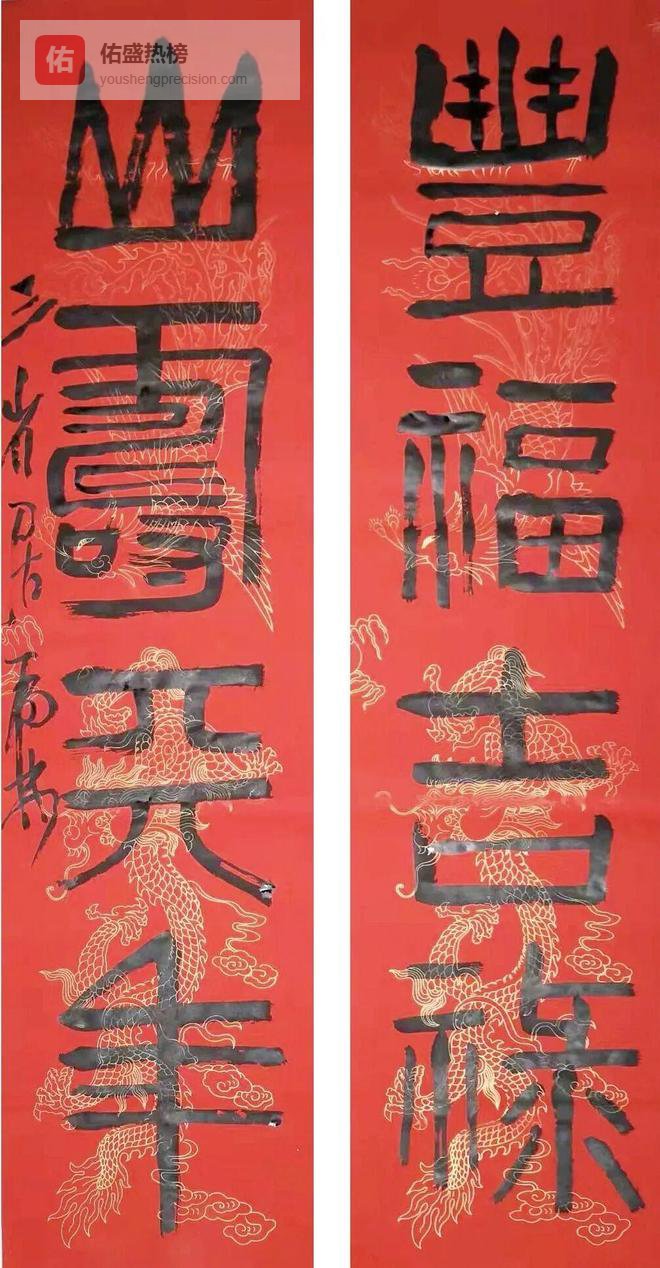 佑 佑盛热榜
youshengprecision.com
豐福吉祿
山壽年
三省